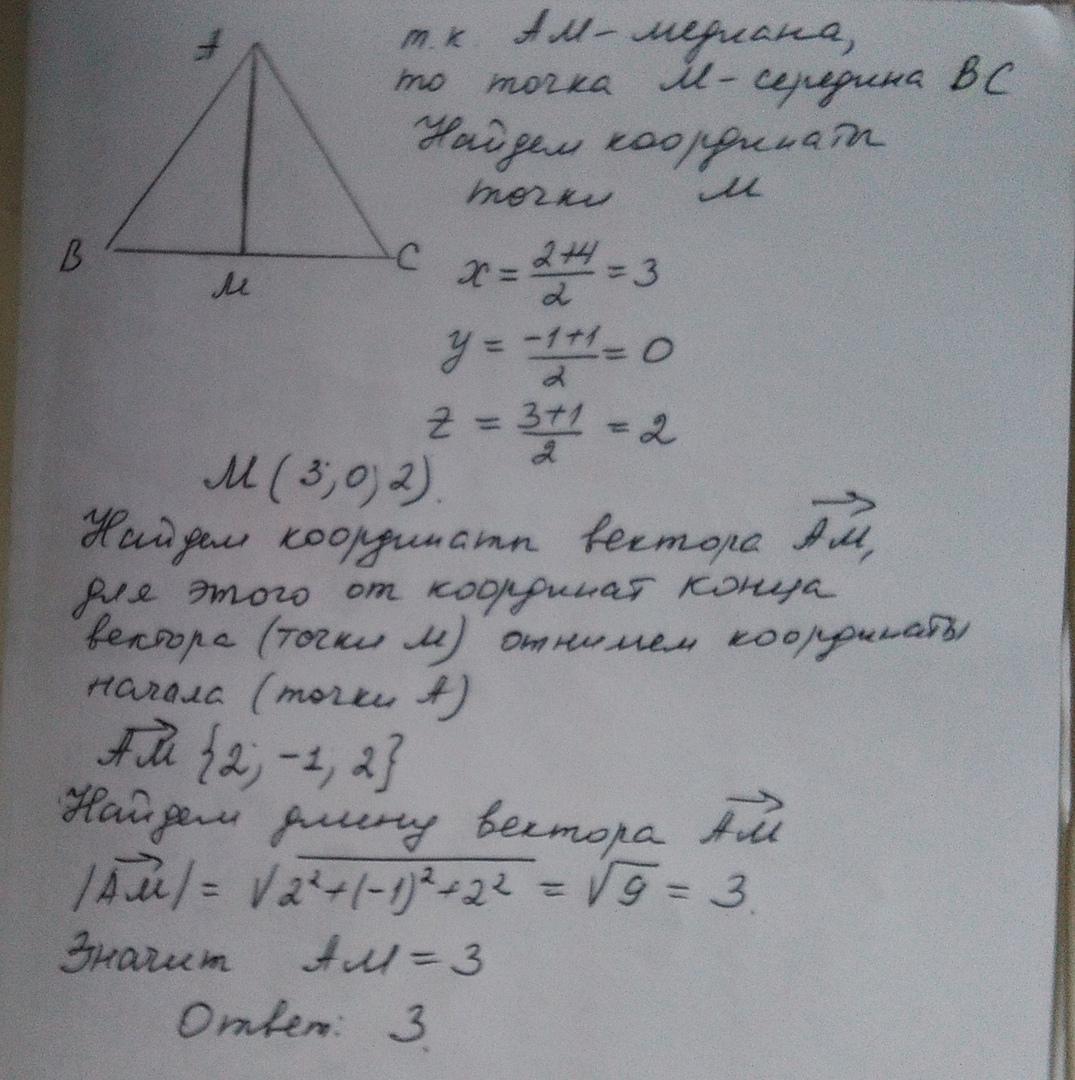 A
т.к. АМ - медиана,
то точка М - середина ВС
Найдем координаты
точки М
B
C
M
x = \frac{2+4}{2} = 3
y = \frac{-1+1}{2} = 0
z = \frac{3+1}{2} = 2
М (3; 0; 2).
Найдем координатп вектора \overrightarrow{АМ},
для этого от координат конца
вектора (точки М) отнимем координаты
начала (точки А)
\overrightarrow{АМ} {2; -1; 2}
Найдем длину вектора \overrightarrow{АМ}
|\overrightarrow{АМ}| = \sqrt{2^2+(-1)^2+2^2} = \sqrt{9} = 3.
Значит АМ = 3
Ответ: 3.